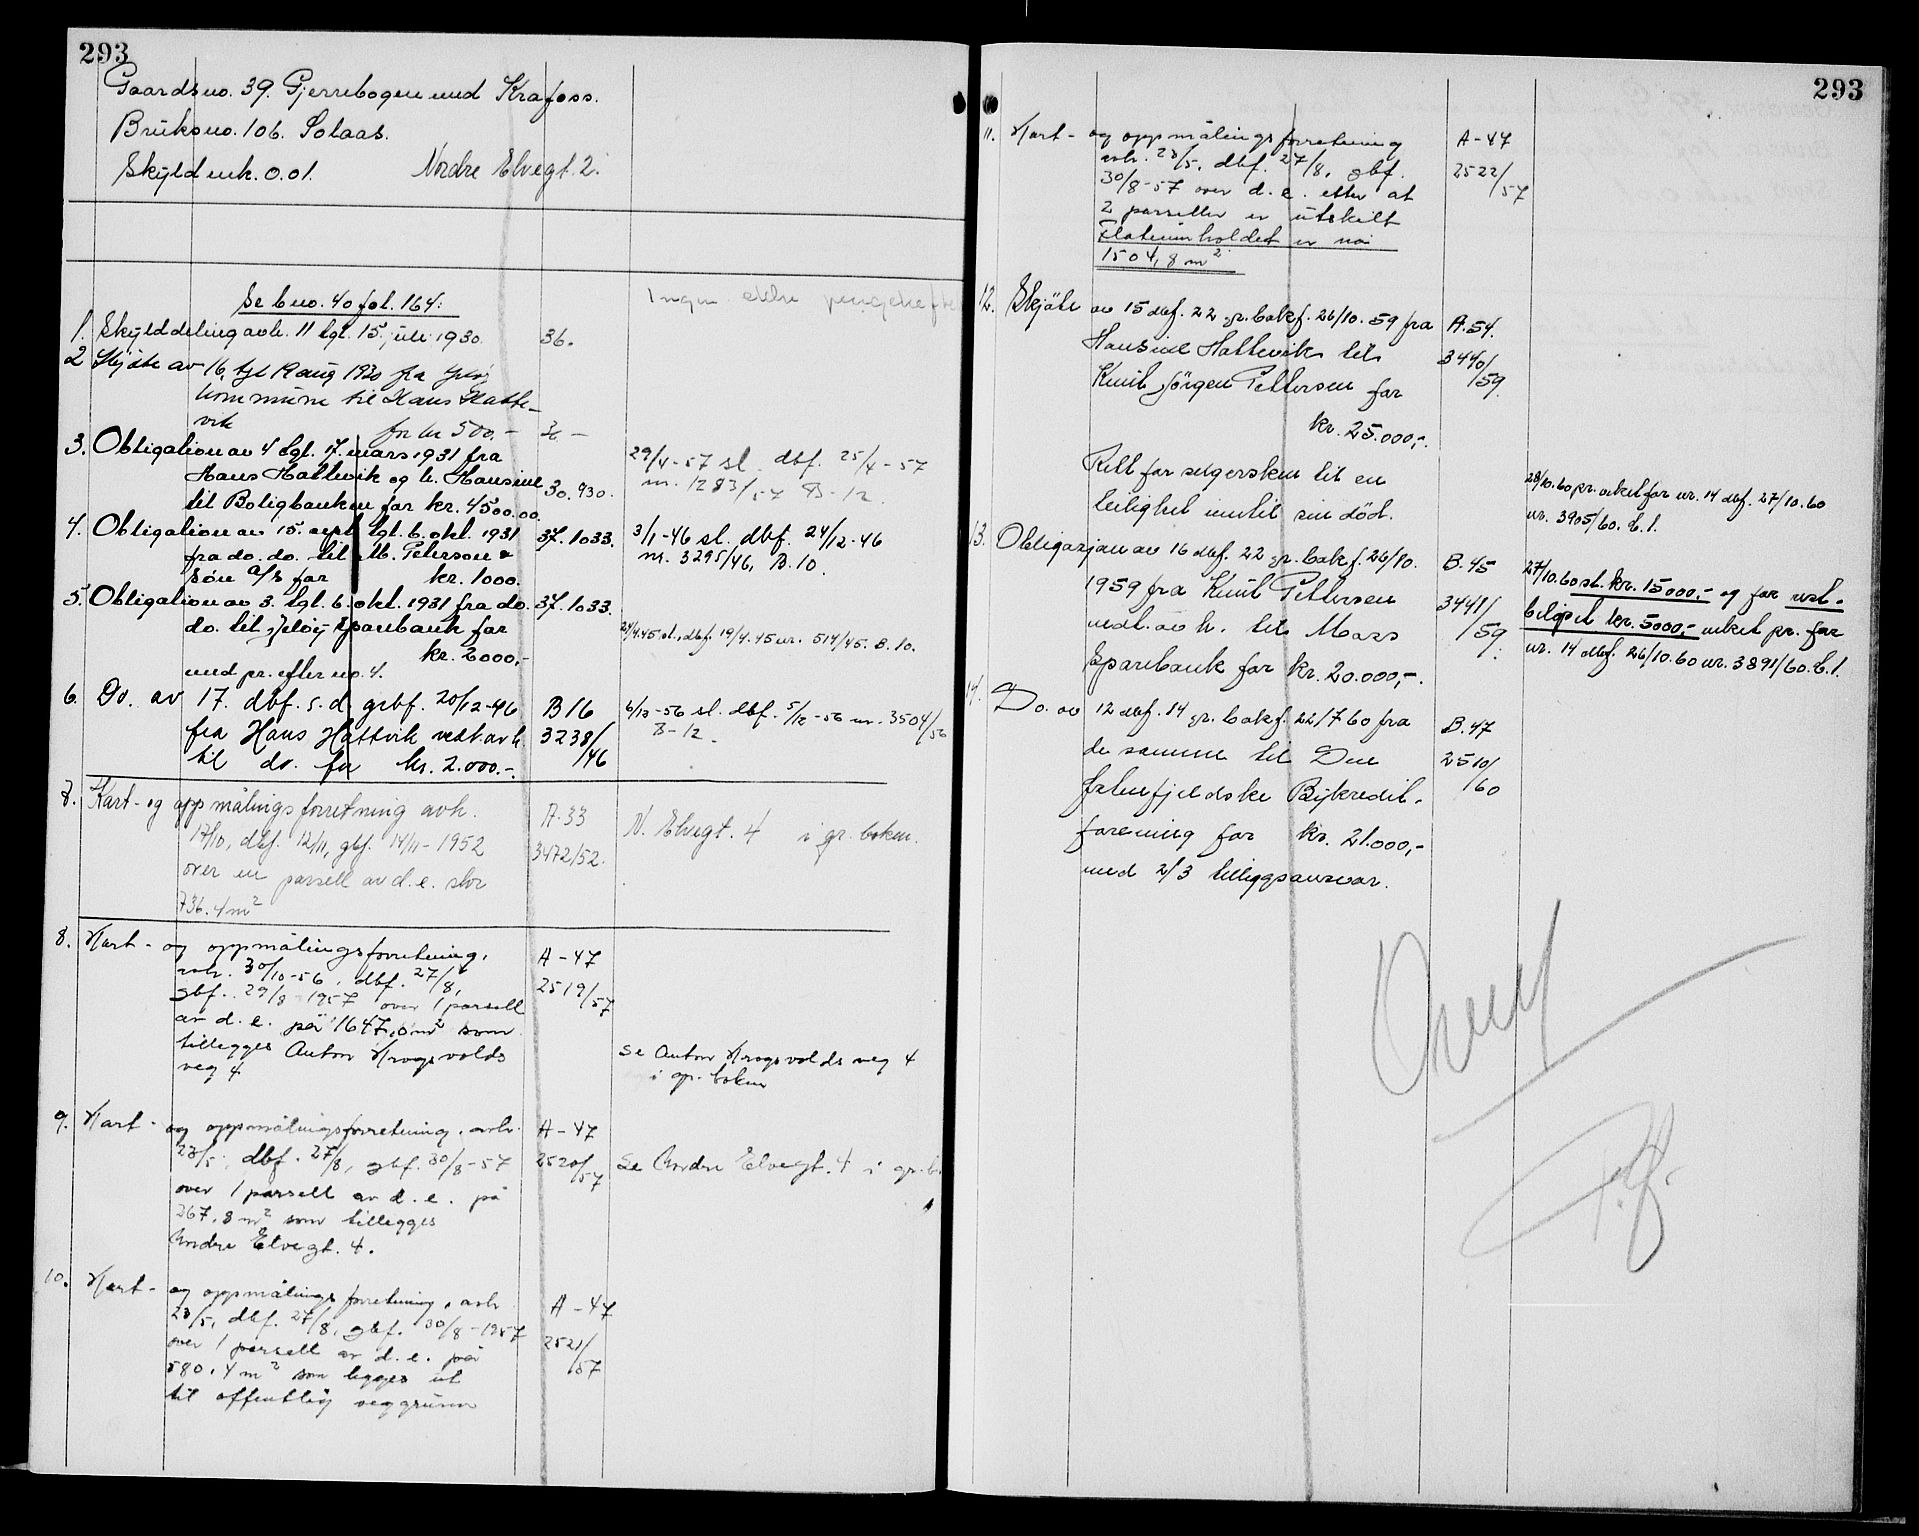 293
Gaardsno. 39. Gjerrebogen med Krafoss.
Bruksno. 106. Solaas.
Skyld mk. 0.01. Nordre Elvegt. 2.
Se bno. 40 fol. 164:
Ingen eldre pengehefte
1. Skylddeling avh. 11 tgl. 15. juli 1930. 36.
2 Skjöte av 16, tgl 12 aug 1930 fra
kommune til Hans Hatte-
vik for kr 500.-
3. Obligation av 4 tgl. 17. mars 1931 fra
Hans Hattevik og h. Hansine 30. 930.
til Boligbanken for kr. 4500.00.
29/4-57 sl. dbf. 25/4-57
nr. 1283/57 B-12.
4. Obligation av 15. sept. tgl. 6. okt. 1931 37. 1033.
fra do. do. til M. Peterson &
sön a/s for kr. 1000.
3/1-46 sl. dbf. 24/12-46
nr. 3295/46, B.10.
5. Obligation av 3. tgl. 6. okt. 1931 fra do. 37. 1033.
do. til Jelöy Sparebank for
kr. 2000,-
med pr. efter no. 4.
21/4.45 sl., dbf. 19/4.45 nr. 514/45. B. 10.
6. Do. av 17. dbf. s.d. grbf. 20/12-46 B 16
fra Hans Hattvik vedt. av h. 3238/
til do. for kr. 2.000.-. /46
6/12-56 sl. dbf. 5/12-56 nr. 3504/56
B-12.
7. Kart- og oppmålingsforretning avh. A. 33
17/10, dbf. 12/11, gbf. 14/11-1952 3472/52.
over en parsell av d.e. stor
736.4 m²
N. Elvegt. 4 i gr. boken.
8. Kart- og oppmålingsforretning, A-47
avh. 30/10-56, dbf. 27/8, 2519/57
gbf. 29/8-1957 over 1 parsell
av d.e. på 1647,0 m² som
tillegges Anton Krogsvolds
veg 4
Se Anton Krogsvolds veg 4
i gr. boken
9. Kart- og oppmålingsforretning, avh. A-47
23/5, dbf. 27/8, gbf. 30/8-57 2520/57
over 1 parsell av d.e. på
267,8 m² som tillegges
Nordre Elvegt. 4.
Se Nordre Elvegt. 4 i gr. b.
10. Kart- og oppmålingsforretning, avh A-47
23/5, dbf. 27/8, gbf. 30/8-1957 2521/
over 1 parsell av d.e. på /57
580,4 m² som legges ut
til offentlig veggrunn
293
11. Kart- og oppmålingsforretning A-47
avh. 23/5, dbf. 27/8, gbf. 2522/57
30/8-57 over d.e. etter at
2 parseller er utskilt
Flateinholdet er nå
1504,8 m²
12. Skjöte av 15 dbf. 22 gr.bokf. 26/10.59 fra A. 54.
Hansine Hattevik til 3440/
Knut Jörgen Pettersen for /59.
kr. 25.000,-.
Rett for selgersken til en
leilighet inntil sin död.
28/10.60 pr. veket for nr. 14 dbf. 27/10.60
nr. 3905/60. b.1.
13. Obligasjon av 16 dbf. 22 gr. bokf. 26/10. B. 45
1959 fra Knut Pettersen 3441/
vedt. av h. til Moss /59.
Sparebank for kr. 20.000,-.
27/10.60 sl. kr. 15000,- og for rest-
belöpet kr. 5000,- veket pr. for
nr. 14 dbf. 26/10.60 nr. 3891/60. b.1.
14. Do. av 12 dbf. 14 gr. bokf. 22/7 60 fra B. 47
de samme til Den 2510/
Østenfjeldske Bykredit- /60
forening for kr. 21.000,-
med 2/3 tilleggsansvar.